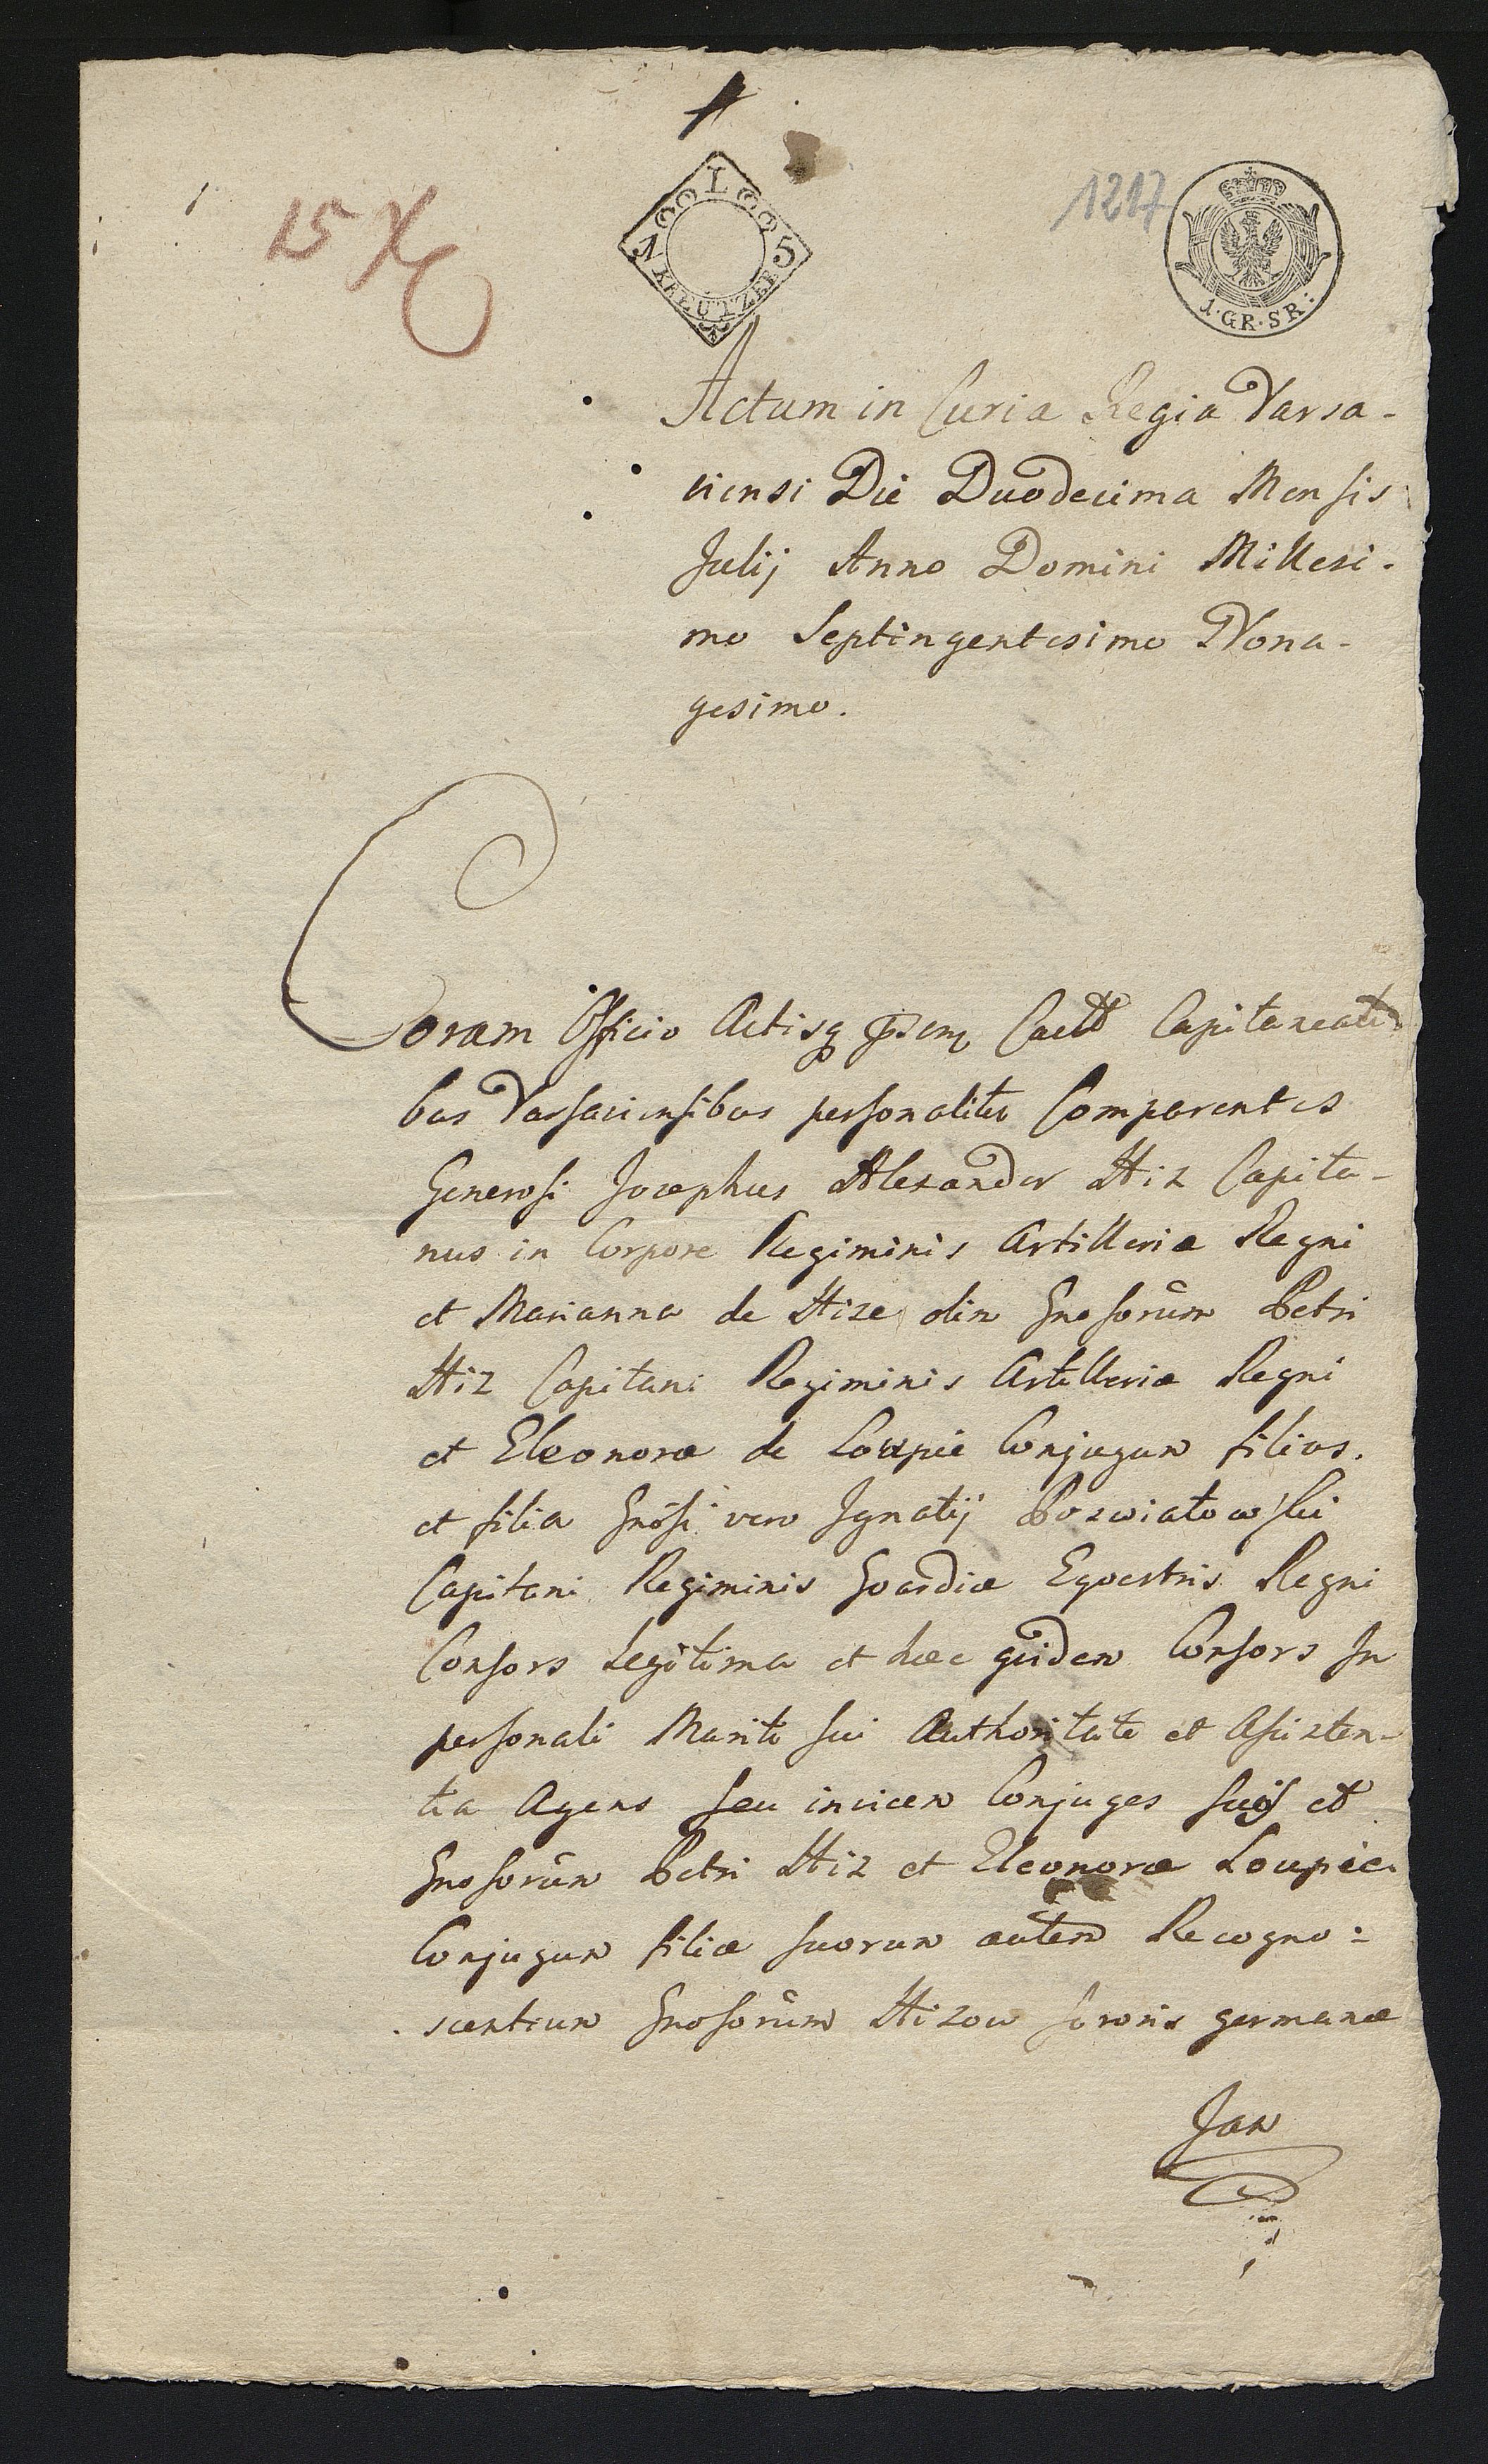 15 X
L
N 5
KREUTZER
1217
1. GR. SR:
Actum in Curia Regia Varsa-
viensi Die Duodecima Mensis
Julij Anno Domini Millesi-
mo Septingentesimo Nona-
gesimo.
Coram Officio Actisq
bus Varsaviensibus personaliter Comparentes
Generosi Josephus Alexander Hiz Capita-
nus in Corpore Regiminis Artilleriæ Regni
et Marianna de Hize olim Gnosorum Petri
Hiz Capitani Regiminis Artilleriæ Regni
et Eleonoræ de Loupie Conjugum filius.
et filia Gnosi vero Ignatij Poswiatowski
Capitani Regiminis Guardiæ Equestris Regni
Consors Legitima et hæc quidem Consors In
personali Mariti sui Authoritate et Assisten-
tia Agens seu invicem Conjuges et
Gnosorum Petri Hiz et Eleonoræ Loupie
Conjugum filiæ suorum autem Recogno:
scentium Gnosorum Hizow sororis germanæ
Jan